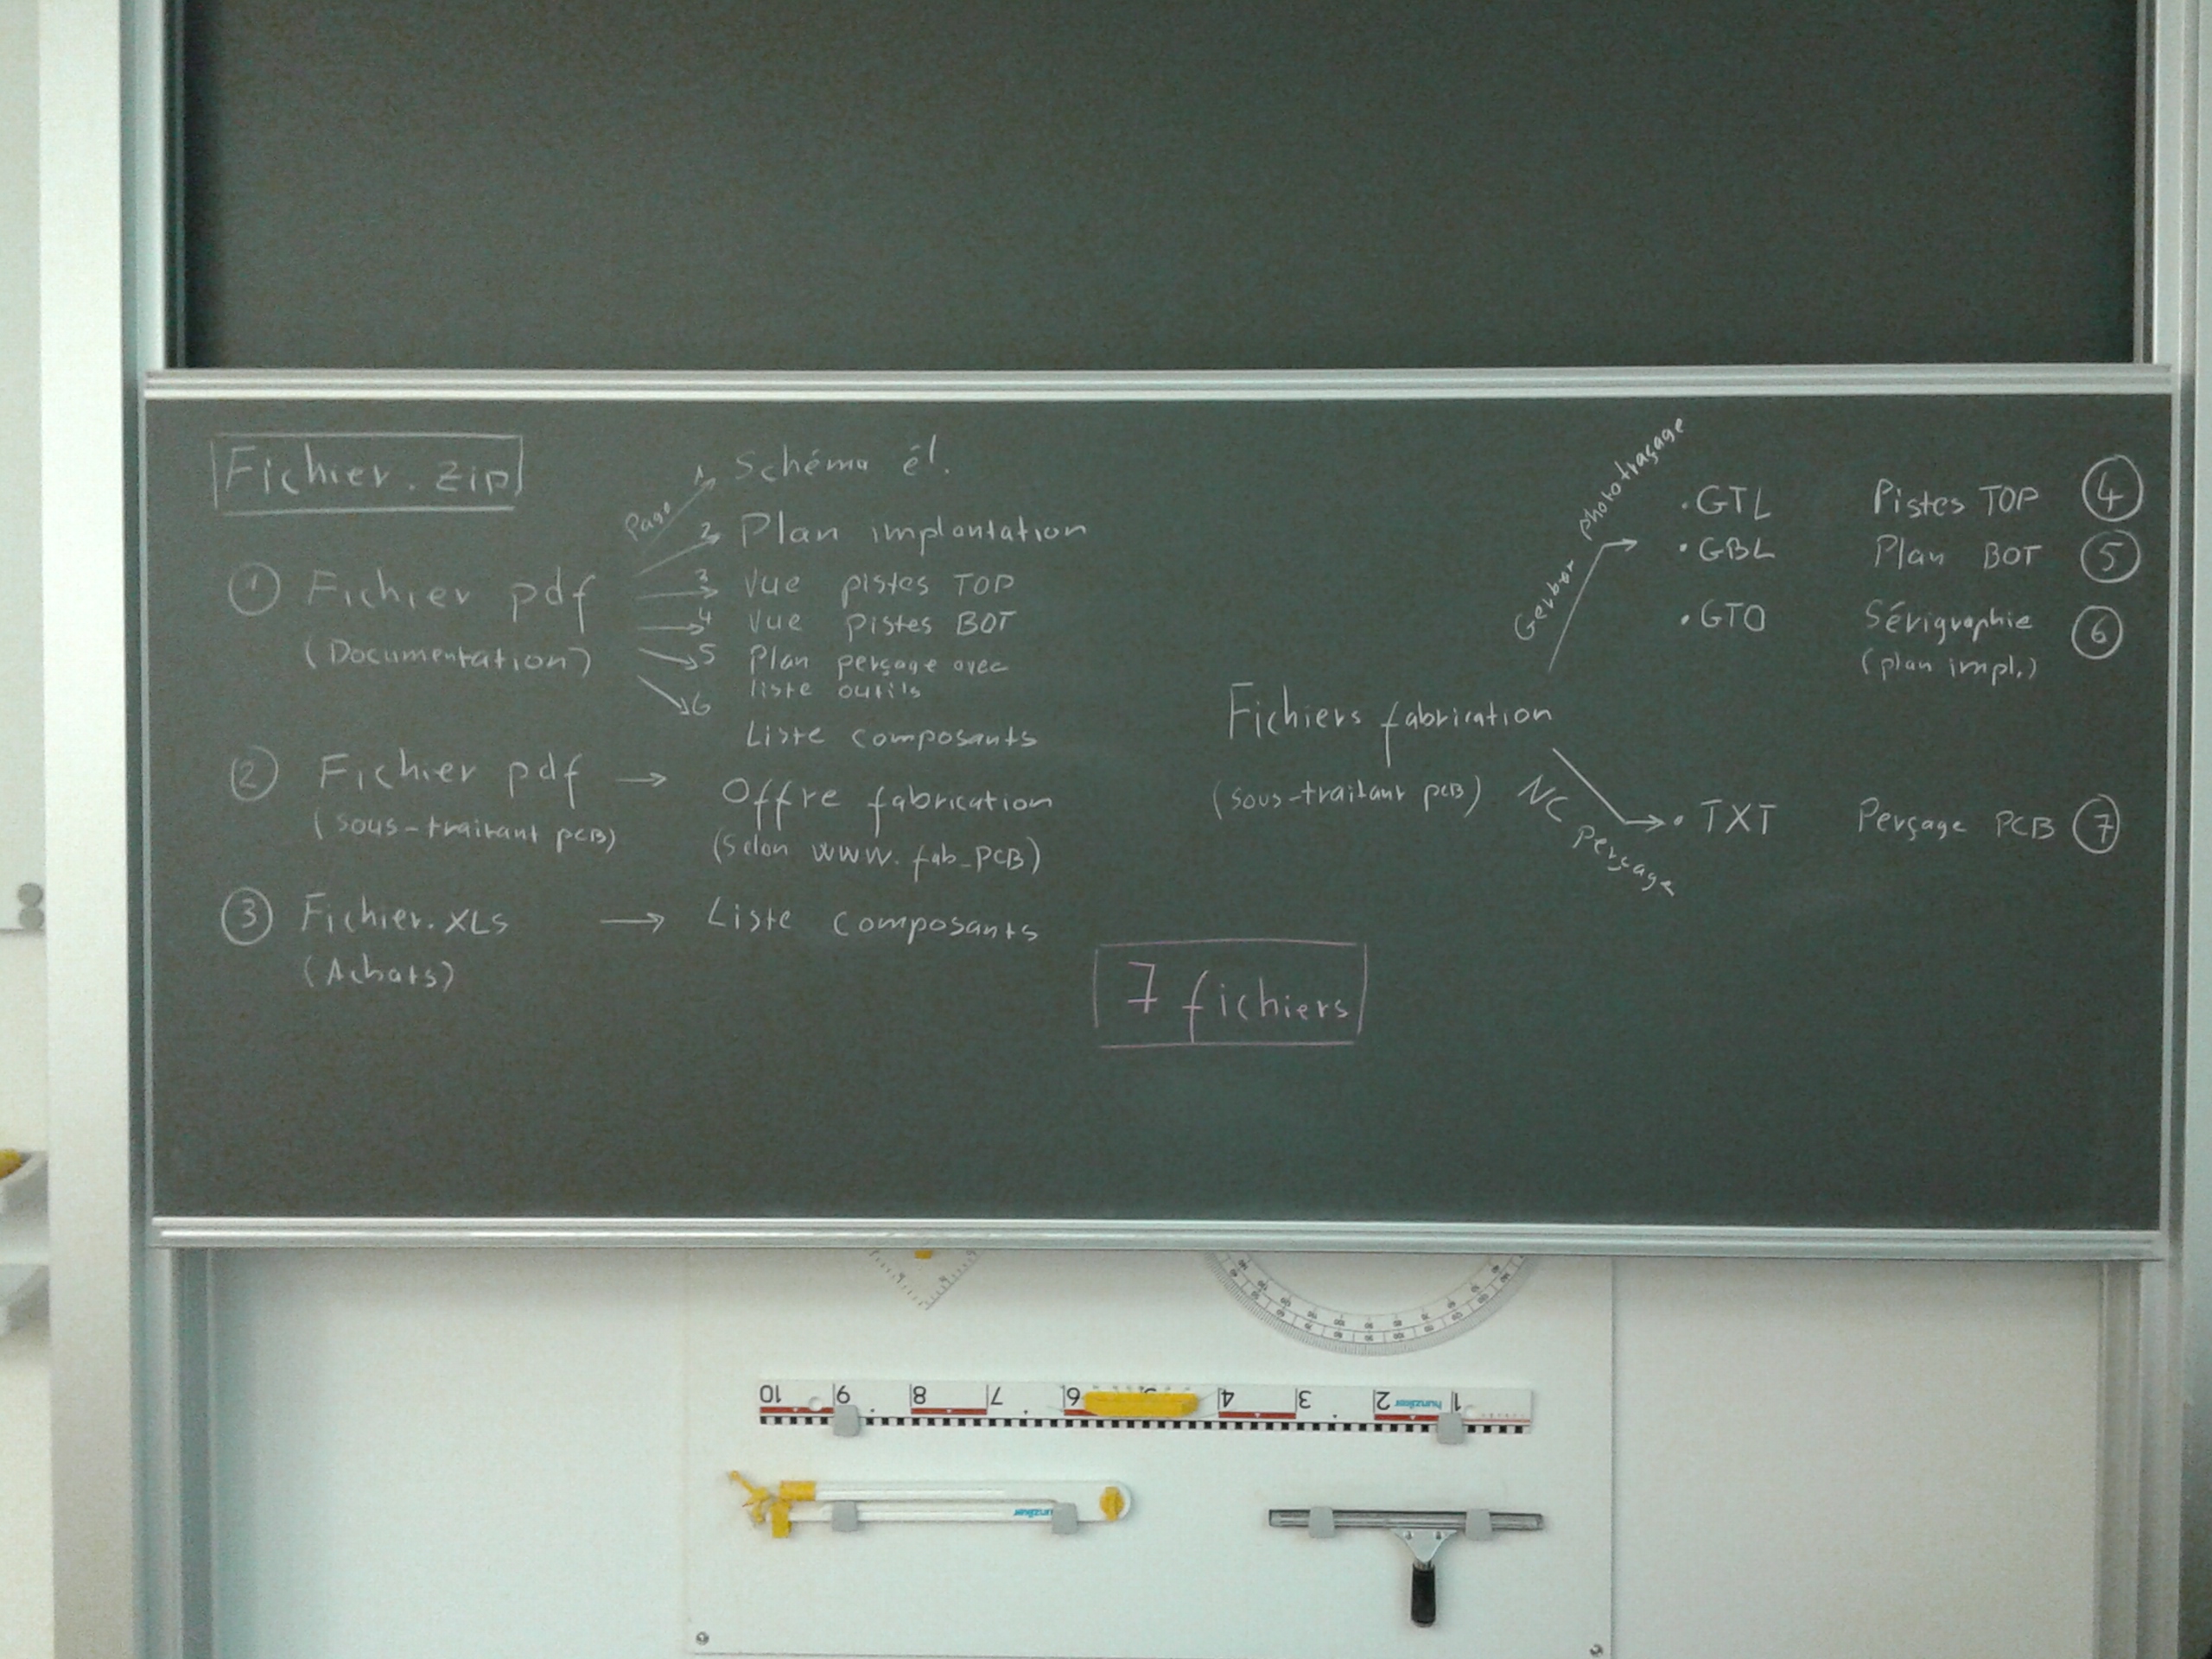 Fichier.zip
① Fichier pdf
(Documentation)
Page
1 Schéma él.
2 Plan implantation
3 Vue pistes TOP
4 Vue pistes BOT
5 Plan perçage avec
liste outils
6
Liste composants
② Fichier pdf →
(sous-traitant PCB)
Offre fabrication
(Selon www.fab_PCB)
③ Fichier.XLS → Liste composants
(Achats)
7 fichiers
Fichiers fabrication
(sous-traitant PCB)
Gerber photo traçage
.GTL Pistes TOP ④
.GBL Plan BOT ⑤
.GTO Sérigraphie ⑥
(plan impl.)
NC Perçage
.TXT Perçage PCB ⑦
10 9 8 7 6 5 4 3 2 hunziker 1
hunziker